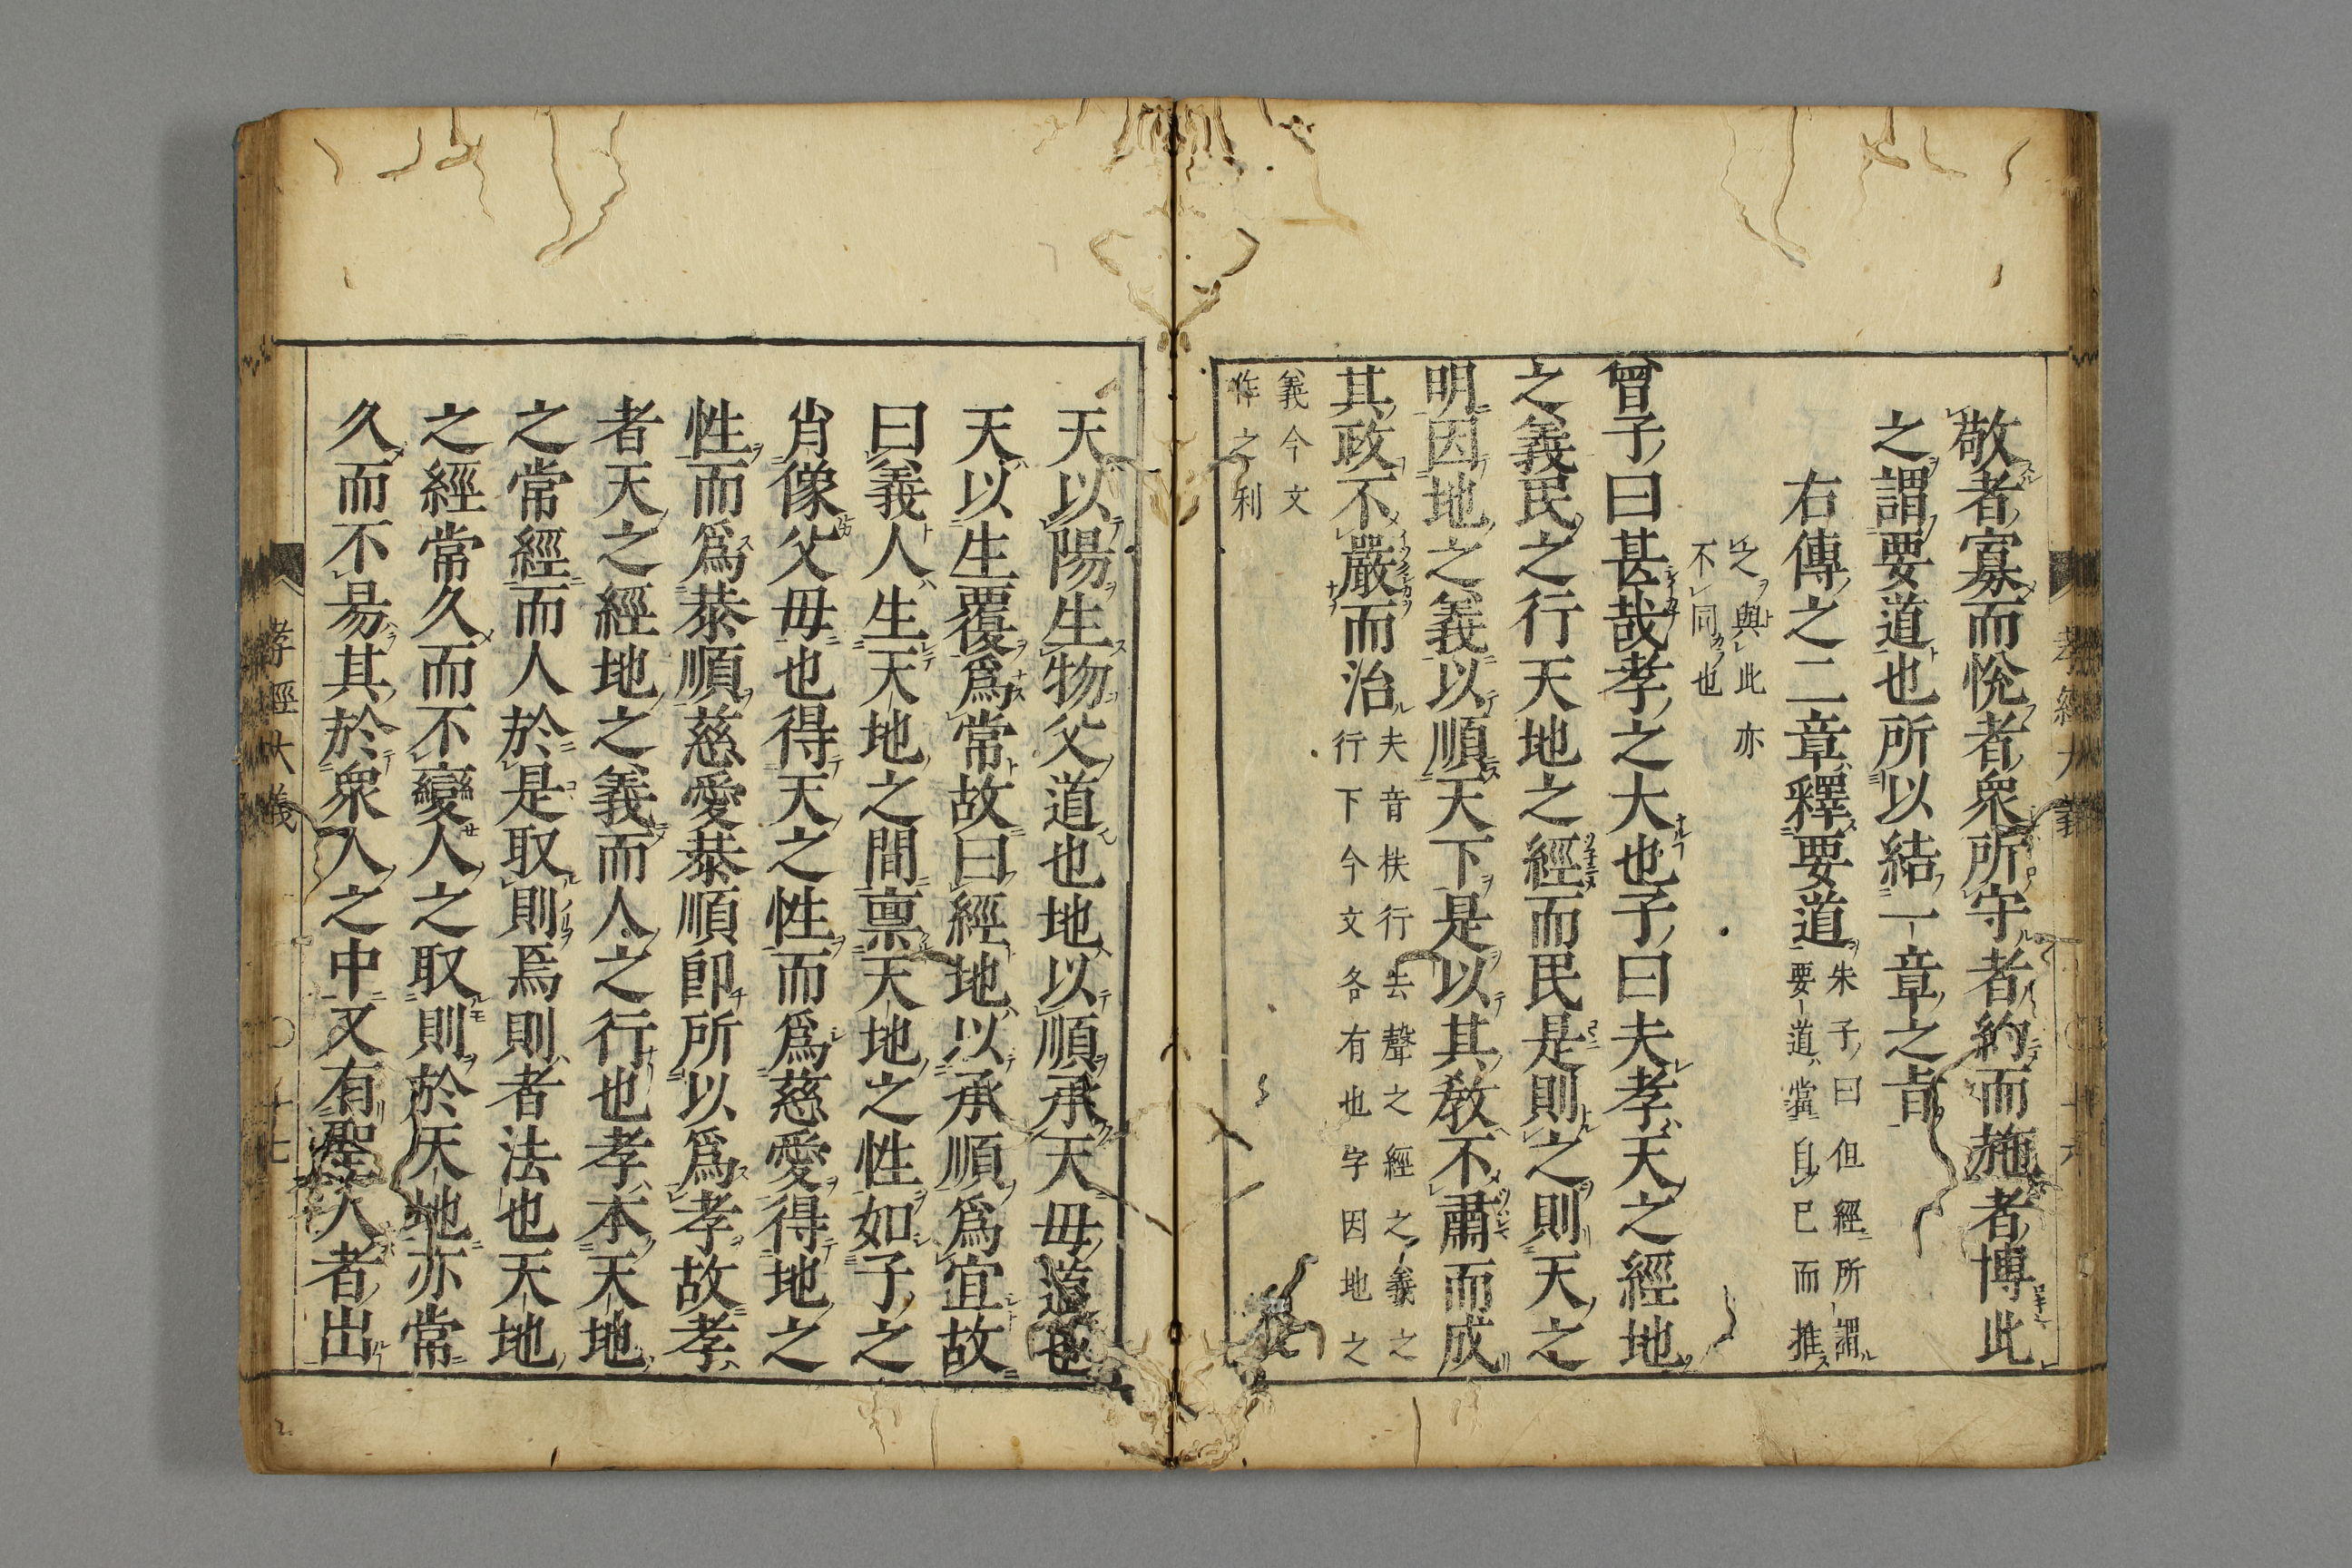 敬者寡而悅者衆所守者約而施者博此
之謂要道也所以結一章之旨
右傳之二章釋要道
朱子曰但經所謂
要道當自己而推
之與此亦
不同也
曾子曰甚哉孝之大也子曰夫孝天之經地
之義民之行天地之經而民是則之則天之
明因地之義以順天下是以其敎不肅而成
其政不嚴而治
夫音扶行去聲之經之義之
行下今文各有也字因地之
義今文
作之利
天以陽生物父道也地以順承天毋道也
天以生覆爲常故曰經地以承順爲宜故
曰義人生天地之間禀天地之性如子之
肖像父毋也得天之性而爲慈愛得地之
性而爲恭順慈愛恭順卽所以爲孝故孝
者天之經地之義而人之行也孝本天地
之常經而人於是取則焉則者法也天地
之經常久而不變人之取則於天地亦常
久而不易其於衆人之中又有聖人者出
孝經大義
十七
孝經大義
十六